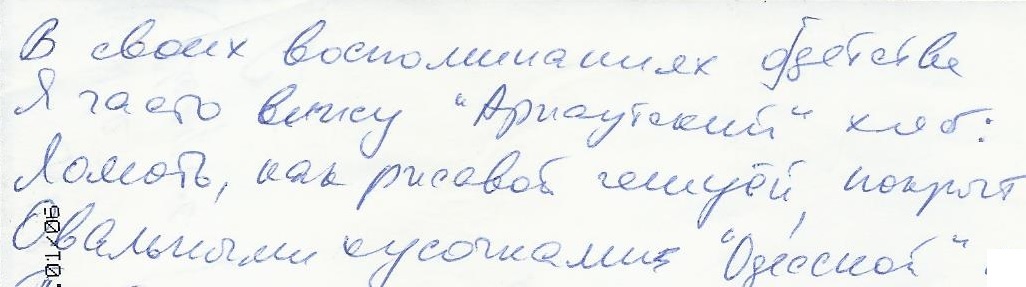 В своих воспоминаниях о детстве
Я часто вижу "Арнаутский" хлеб:
Ломоть, как рисовой чешуёй, покрыт
Овальными кусочками "Одесской".
.01/06